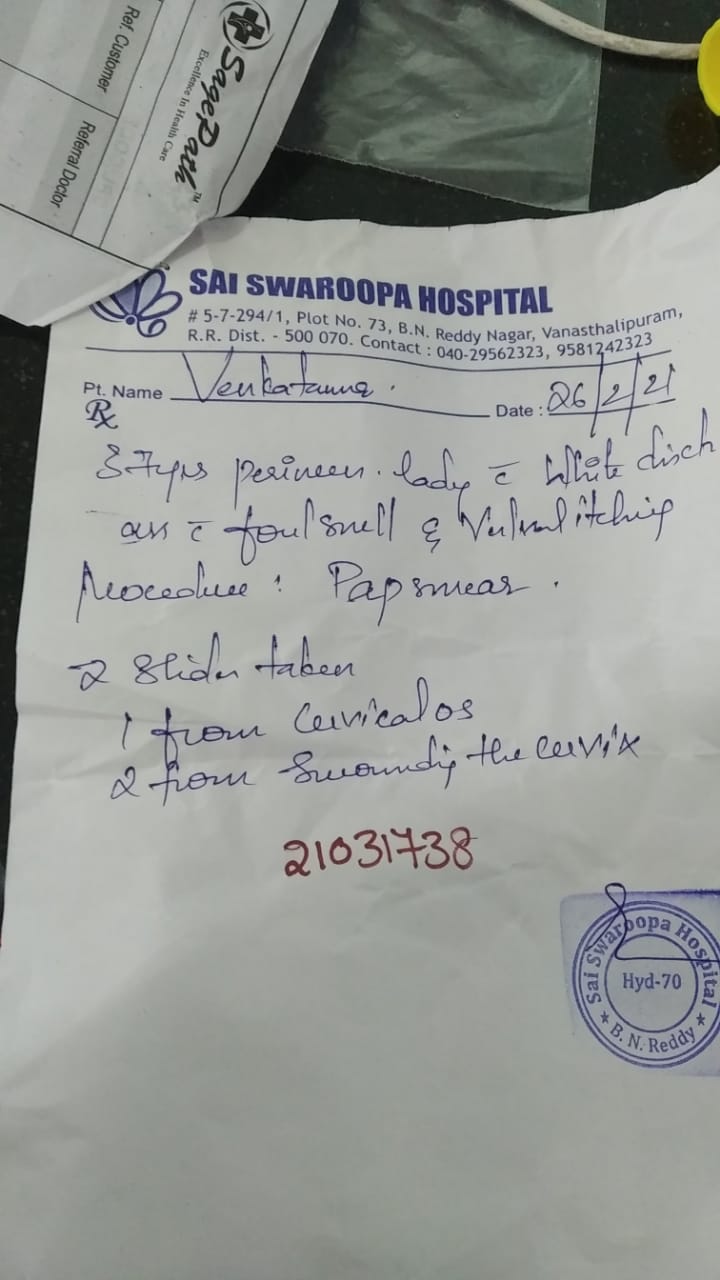 Ref. Customer
Referral Doctor
SagePath™
Excellence In Health Care
SAI SWAROOPA HOSPITAL
# 5-7-294/1, Plot No. 73, B.N. Reddy Nagar, Vanasthalipuram,
R.R. Dist. - 500 070. Contact : 040-29562323, 9581242323
Pt. Name
Date : 26/2/21
Rx
37yrs lady c̄ White disch
c̄ foul smell & Vulval itching
Procedure : Pap smear .
2 Slides taken
1 from Cervical os
2 from Surrounding the cervix
21031738
Sai Swaroopa Hospital
Hyd-70
★ B. N. Reddy ★